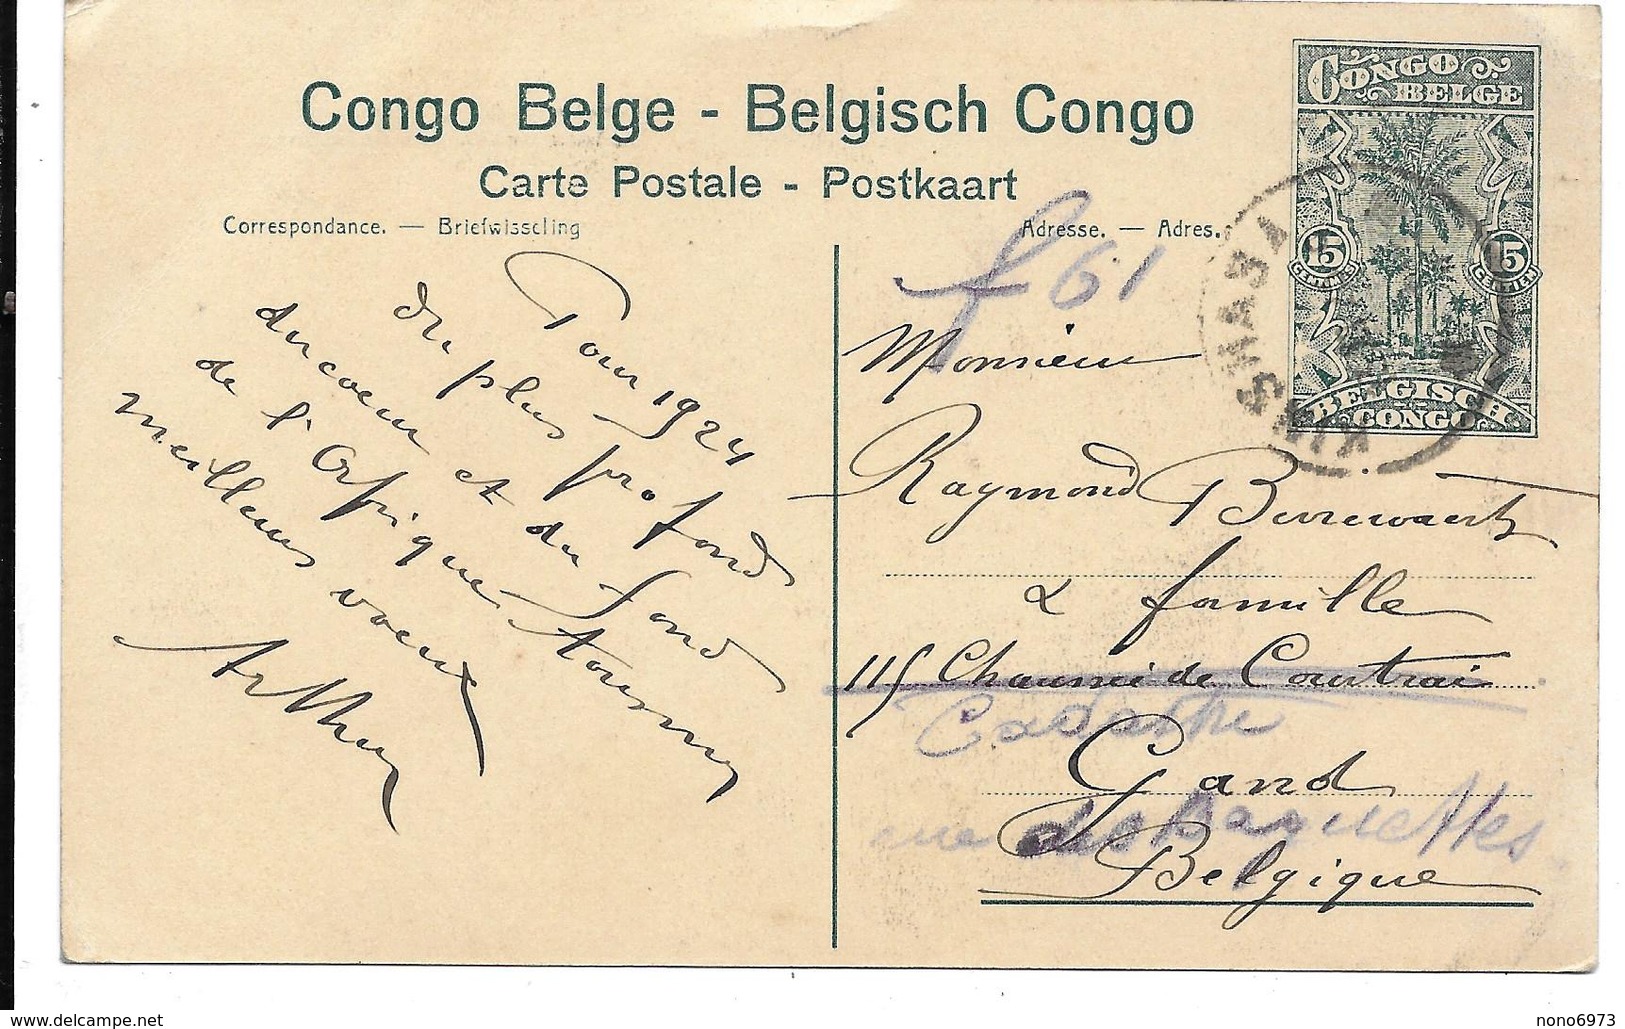 Congo Belge - Belgisch Congo
Carte Postale - Postkaart
Correspondance. — Briefwisseling
Adresse. — Adres.
CONGO BELGE
15 15
BELGISCH CONGO
KINSHASA
f 61
Pour 1924
du plus profond
du coeur et du fond
de l'Afrique
meilleurs voeux
Monsieur
Raymond
& famille
115 Chaussée de Courtrai
Cadastre
Gand
rue des Baguettes
Belgique
www.delcampe.net
nono6973